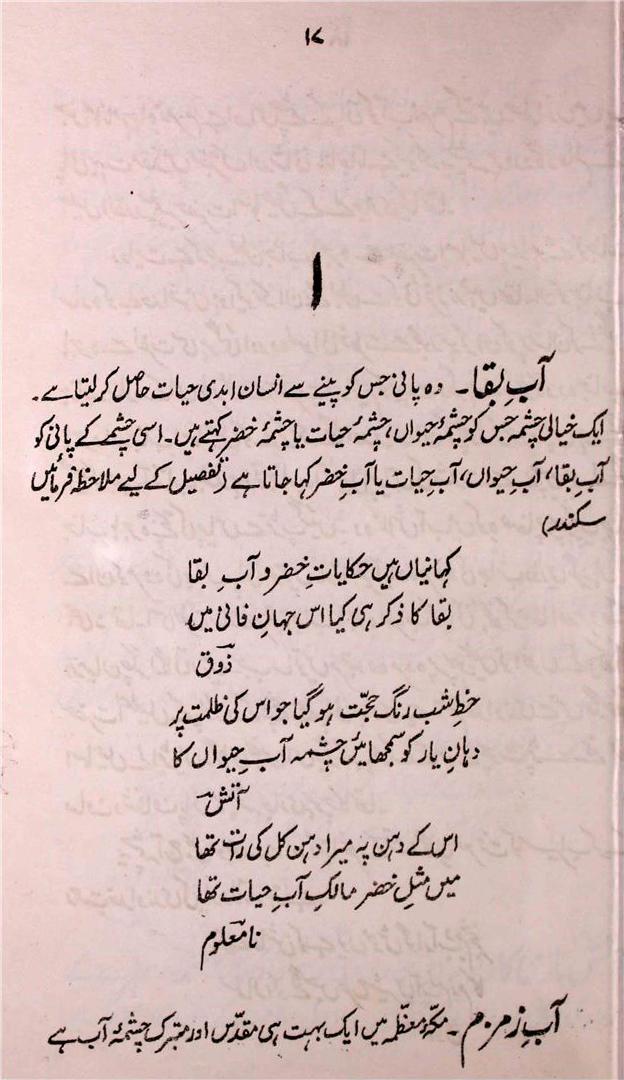 ۱۷
ا
آبِ بقا۔ وہ پانی جس کو پینے سے انسان ابدی حیات حاصل کرلیتا ہے۔
ایک خیالی چشمہ جس کو چشمۂ حیواں، چشمۂ حیات یا چشمۂ خضر کہتے ہیں۔ اسی چشمے کے پانی کو
آبِ بقا، آبِ حیواں، آبِ حیات یا آبِ خضر کہا جاتا ہے (تفصیل کے لیے ملاحظہ فرمائیں
سکندر)
کہانیاں ہیں حکایاتِ خضر و آبِ بقا
بقا کا ذکر ہی کیا اس جہانِ فانی میں
ذوق
خطِ شب رنگ حجّت ہو گیا جو اس کی ظلمت پر
دہانِ یار کو سمجھائیں چشمہ آبِ حیواں کا
آتش
اس کے دہن پہ میرا دہن کل کی رات تھا
میں مثلِ خضر مالکِ آبِ حیات تھا
نامعلوم
آبِ زمزم۔ مکۂ معظّمہ میں ایک بہت ہی مقدّس اور متبرک چشمۂ آب ہے